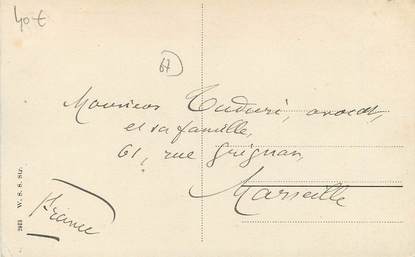 40 €
67
Monsieur Tuduri, avocat,
et sa famille,
61, rue Grignan,
Marseille
France
2613 W. S. S. Str.